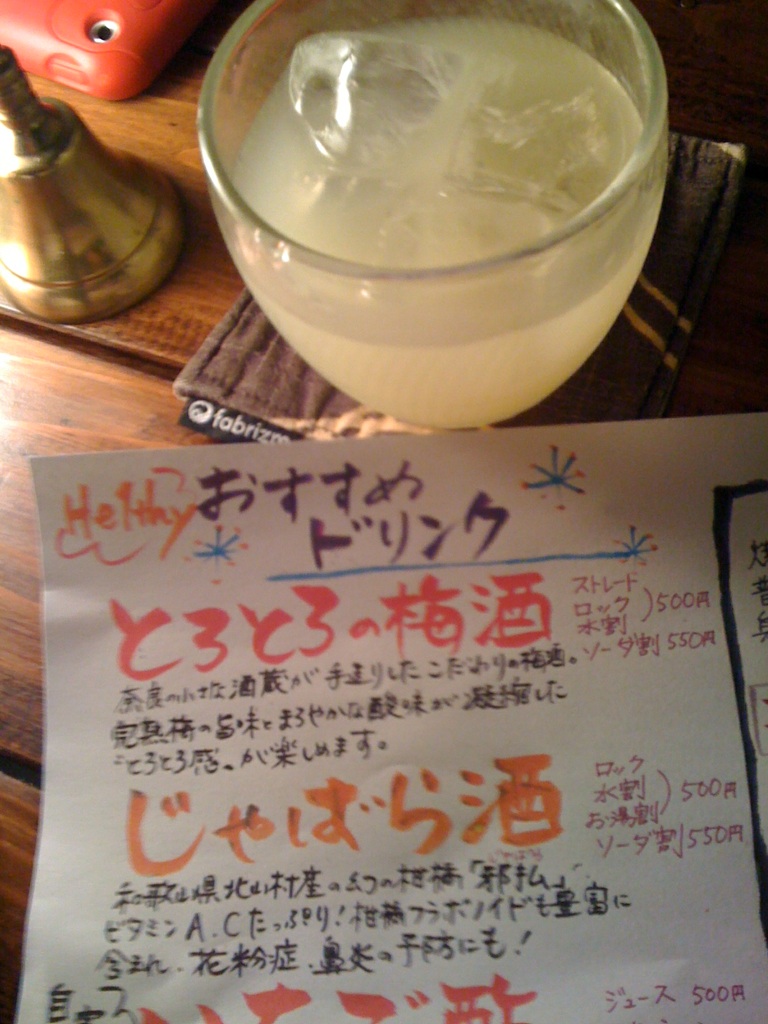 fabrizm
Helthy おすすめ
ドリンク
とろとろの梅酒
ストレート
ロック
水割
500円
ソーダ割 550円
奈良の小さな酒蔵が手造りしたこだわりの梅酒。
完熟梅の旨味とまろやかな酸味が凝縮した
"とろとろ感"が楽しめます。
じゃばら酒
ロック
水割
お湯割
500円
ソーダ割 550円
じゃばら
和歌山県北山村産の幻の柑橘「邪払」
ビタミンA.Cたっぷり!柑橘フラボノイドも豊富に
含まれ、花粉症、鼻炎の予防にも!
自家
ジュース 500円